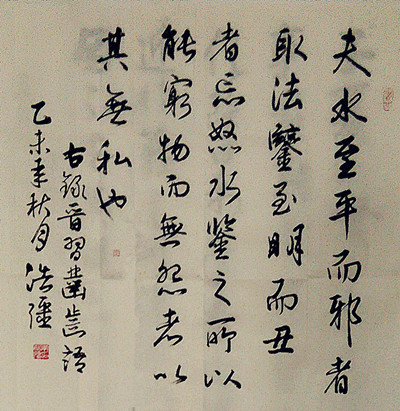 夫水至平而邪者
取法鑒至明而丑
者忘怒水鑒之所以
能窮物而無怨者以
其無私也
右錄晉習鑿齒語
乙未年秋月浩疆